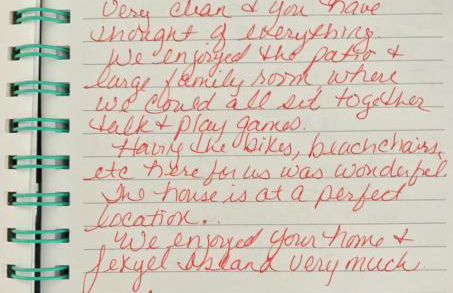 Very clean & you have
thought of everything.
We enjoyed the patio &
large family room where
we could all sit together
talk & play games.
Having the bikes, beachchairs,
etc here for us was wonderful.
The house is at a perfect
location..
We enjoyed your home &
Jekyel Island very much.